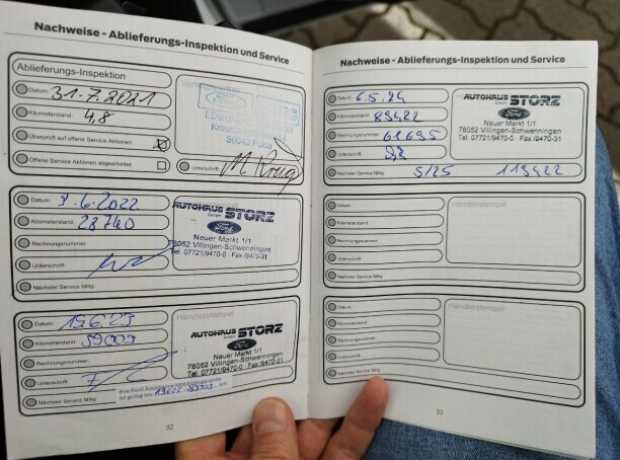 Nachweise - Ablieferungs-Inspektion und Service
Ablieferungs-Inspektion
Datum: 31.7.2021
Kilometerstand: 4,8
Überprüft auf offene Service Aktionen
Offene Service Aktionen abgearbeitet
Unterschrift: M. Krug
Datum: 8.6.2022
Kilometerstand: 28740
Rechnungsnummer:
Unterschrift:
Nächster Service fällig
AUTOHAUS STORZ
GmbH
Ford
Neuer Markt 1/1
78052 Villingen-Schwenningen
Tel. 07721/9470-0 Fax /9470-31
Datum: 15.6.23
Kilometerstand: 59009
Rechnungsnummer:
Unterschrift:
Nächster Service fällig
Händlerstempel
AUTOHAUS STORZ
GmbH
Ford
Neuer Markt 1/1
78052 Villingen-Schwenningen
Tel. 07721/9470-0 Fax /9470-31
32
Nachweise - Ablieferungs-Inspektion und Service
Datum: 6.5.24
Kilometerstand: 89422
Rechnungsnummer: 61695
Unterschrift:
Nächster Service fällig 5/25 119422
AUTOHAUS STORZ
GmbH
Ford
Neuer Markt 1/1
78052 Villingen-Schwenningen
Tel. 07721/9470-0 Fax /9470-31
Datum:
Kilometerstand:
Rechnungsnummer:
Unterschrift:
Nächster Service fällig
Händlerstempel
Datum:
Kilometerstand:
Rechnungsnummer:
Unterschrift:
Nächster Service fällig
Händlerstempel
33